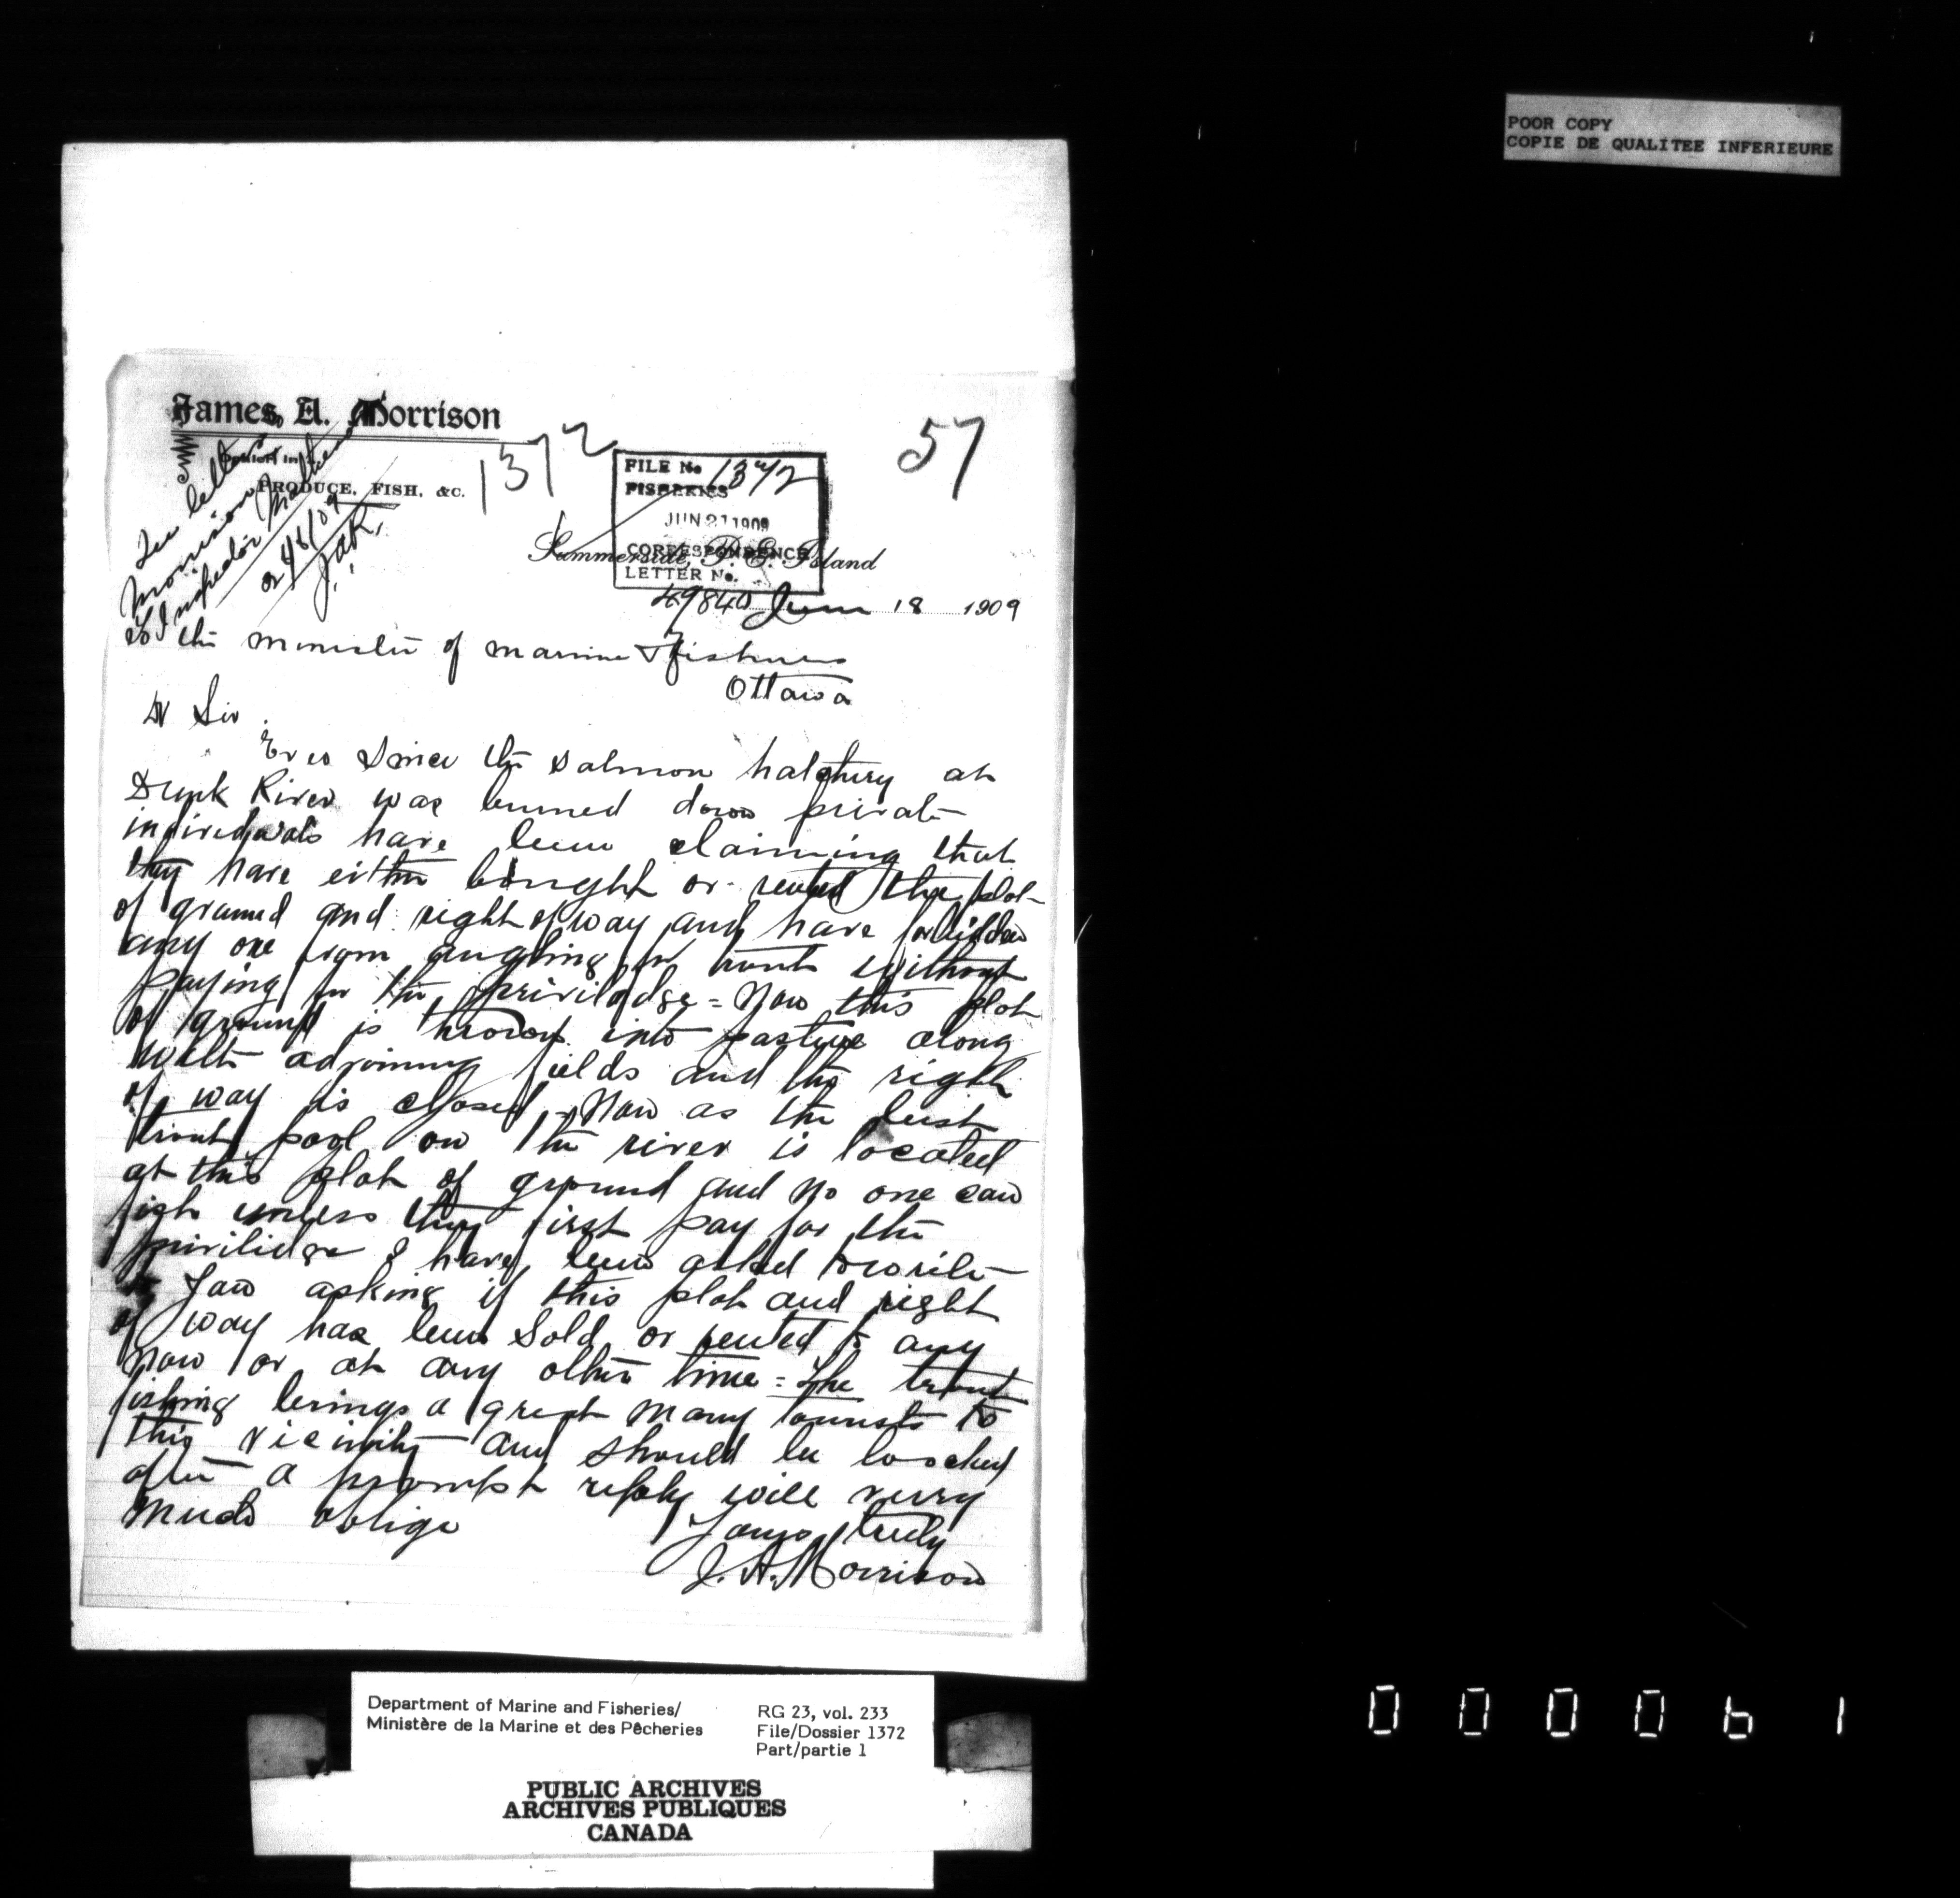 POOR COPY
COPIE DE QUALITEE INFERIEURE
James A. Morrison
Dealer in
PRODUCE, FISH, &c.
1372
57
See letters
Morrison
to Inspector Matheson
24/6/09
FILE No 1372
FISHERIES
JUN 21 1909
CORRESPONDENCE
LETTER No.
Summerside, P. E. Island
49840 June 18 1909
To the Minister of Marine & Fisheries
Ottawa
Dr Sir
Ever Since the Salmon hatchery at
Dunk River was burned down private
individuals have been claiming that
they have either bought or rented the plot
of ground and right of way and have forbidden
any one from angling for trout without
paying for the priviladge = Now this plot
of ground is thrown into pasture along
with adjoining fields and the right
of way is closed, Now as the best
trout pool on the river is located
at this plot of ground and no one can
fish unless they first pay for the
privilidge I have been asked to write
to you asking if this plot and right
of way has been Sold or rented to any
now or at any other time = The trout
fishing brings a great many tourists to
this vicinity and should be loocked
after a prompt reply will verry
much oblige
Yours truly
J. A. Morrison
Department of Marine and Fisheries/
Ministère de la Marine et des Pêcheries
RG 23, vol. 233
File/Dossier 1372
Part/partie 1
PUBLIC ARCHIVES
ARCHIVES PUBLIQUES
CANADA
000061